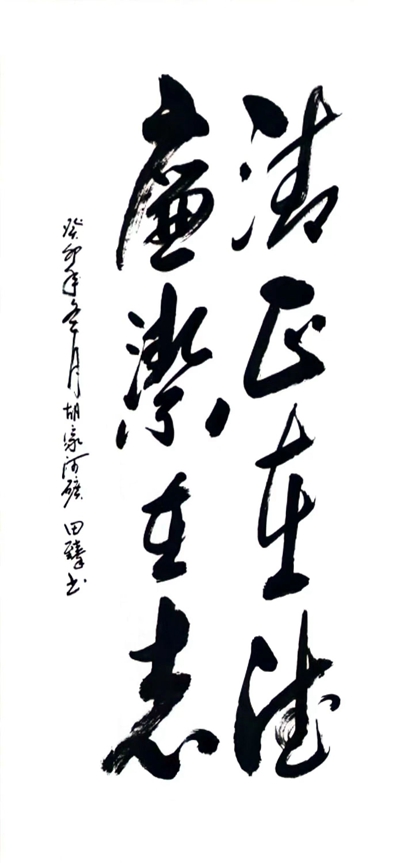 清正在德
廉洁在志
癸卯年冬月胡家河矿 田臻书